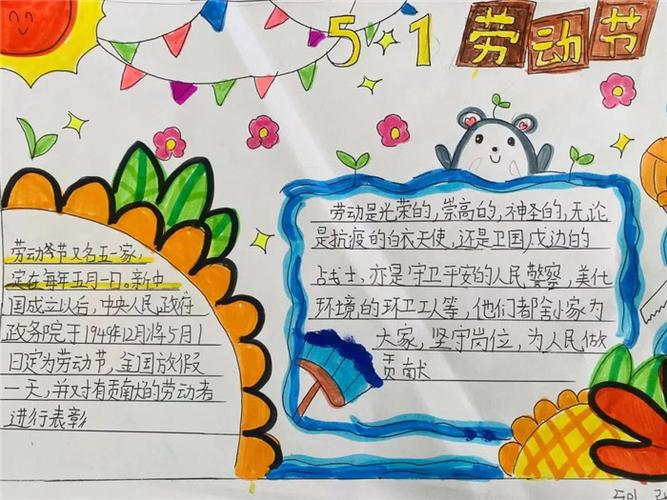 5·1 劳动节
劳动节又名五一家,
定在每年五月一日。新中
国成立以后,中央人民政府
政务院于1949年12月将5月1
日定为劳动节,全国放假
一天,并对有贡献的劳动者
进行表彰
劳动是光荣的,崇高的,神圣的,无论
是抗疫的白衣天使,还是卫国戍边的
战士,亦是守卫平安的人民警察,美化
环境的环卫工人等,他们都舍小家为
大家,坚守岗位,为人民做
贡献